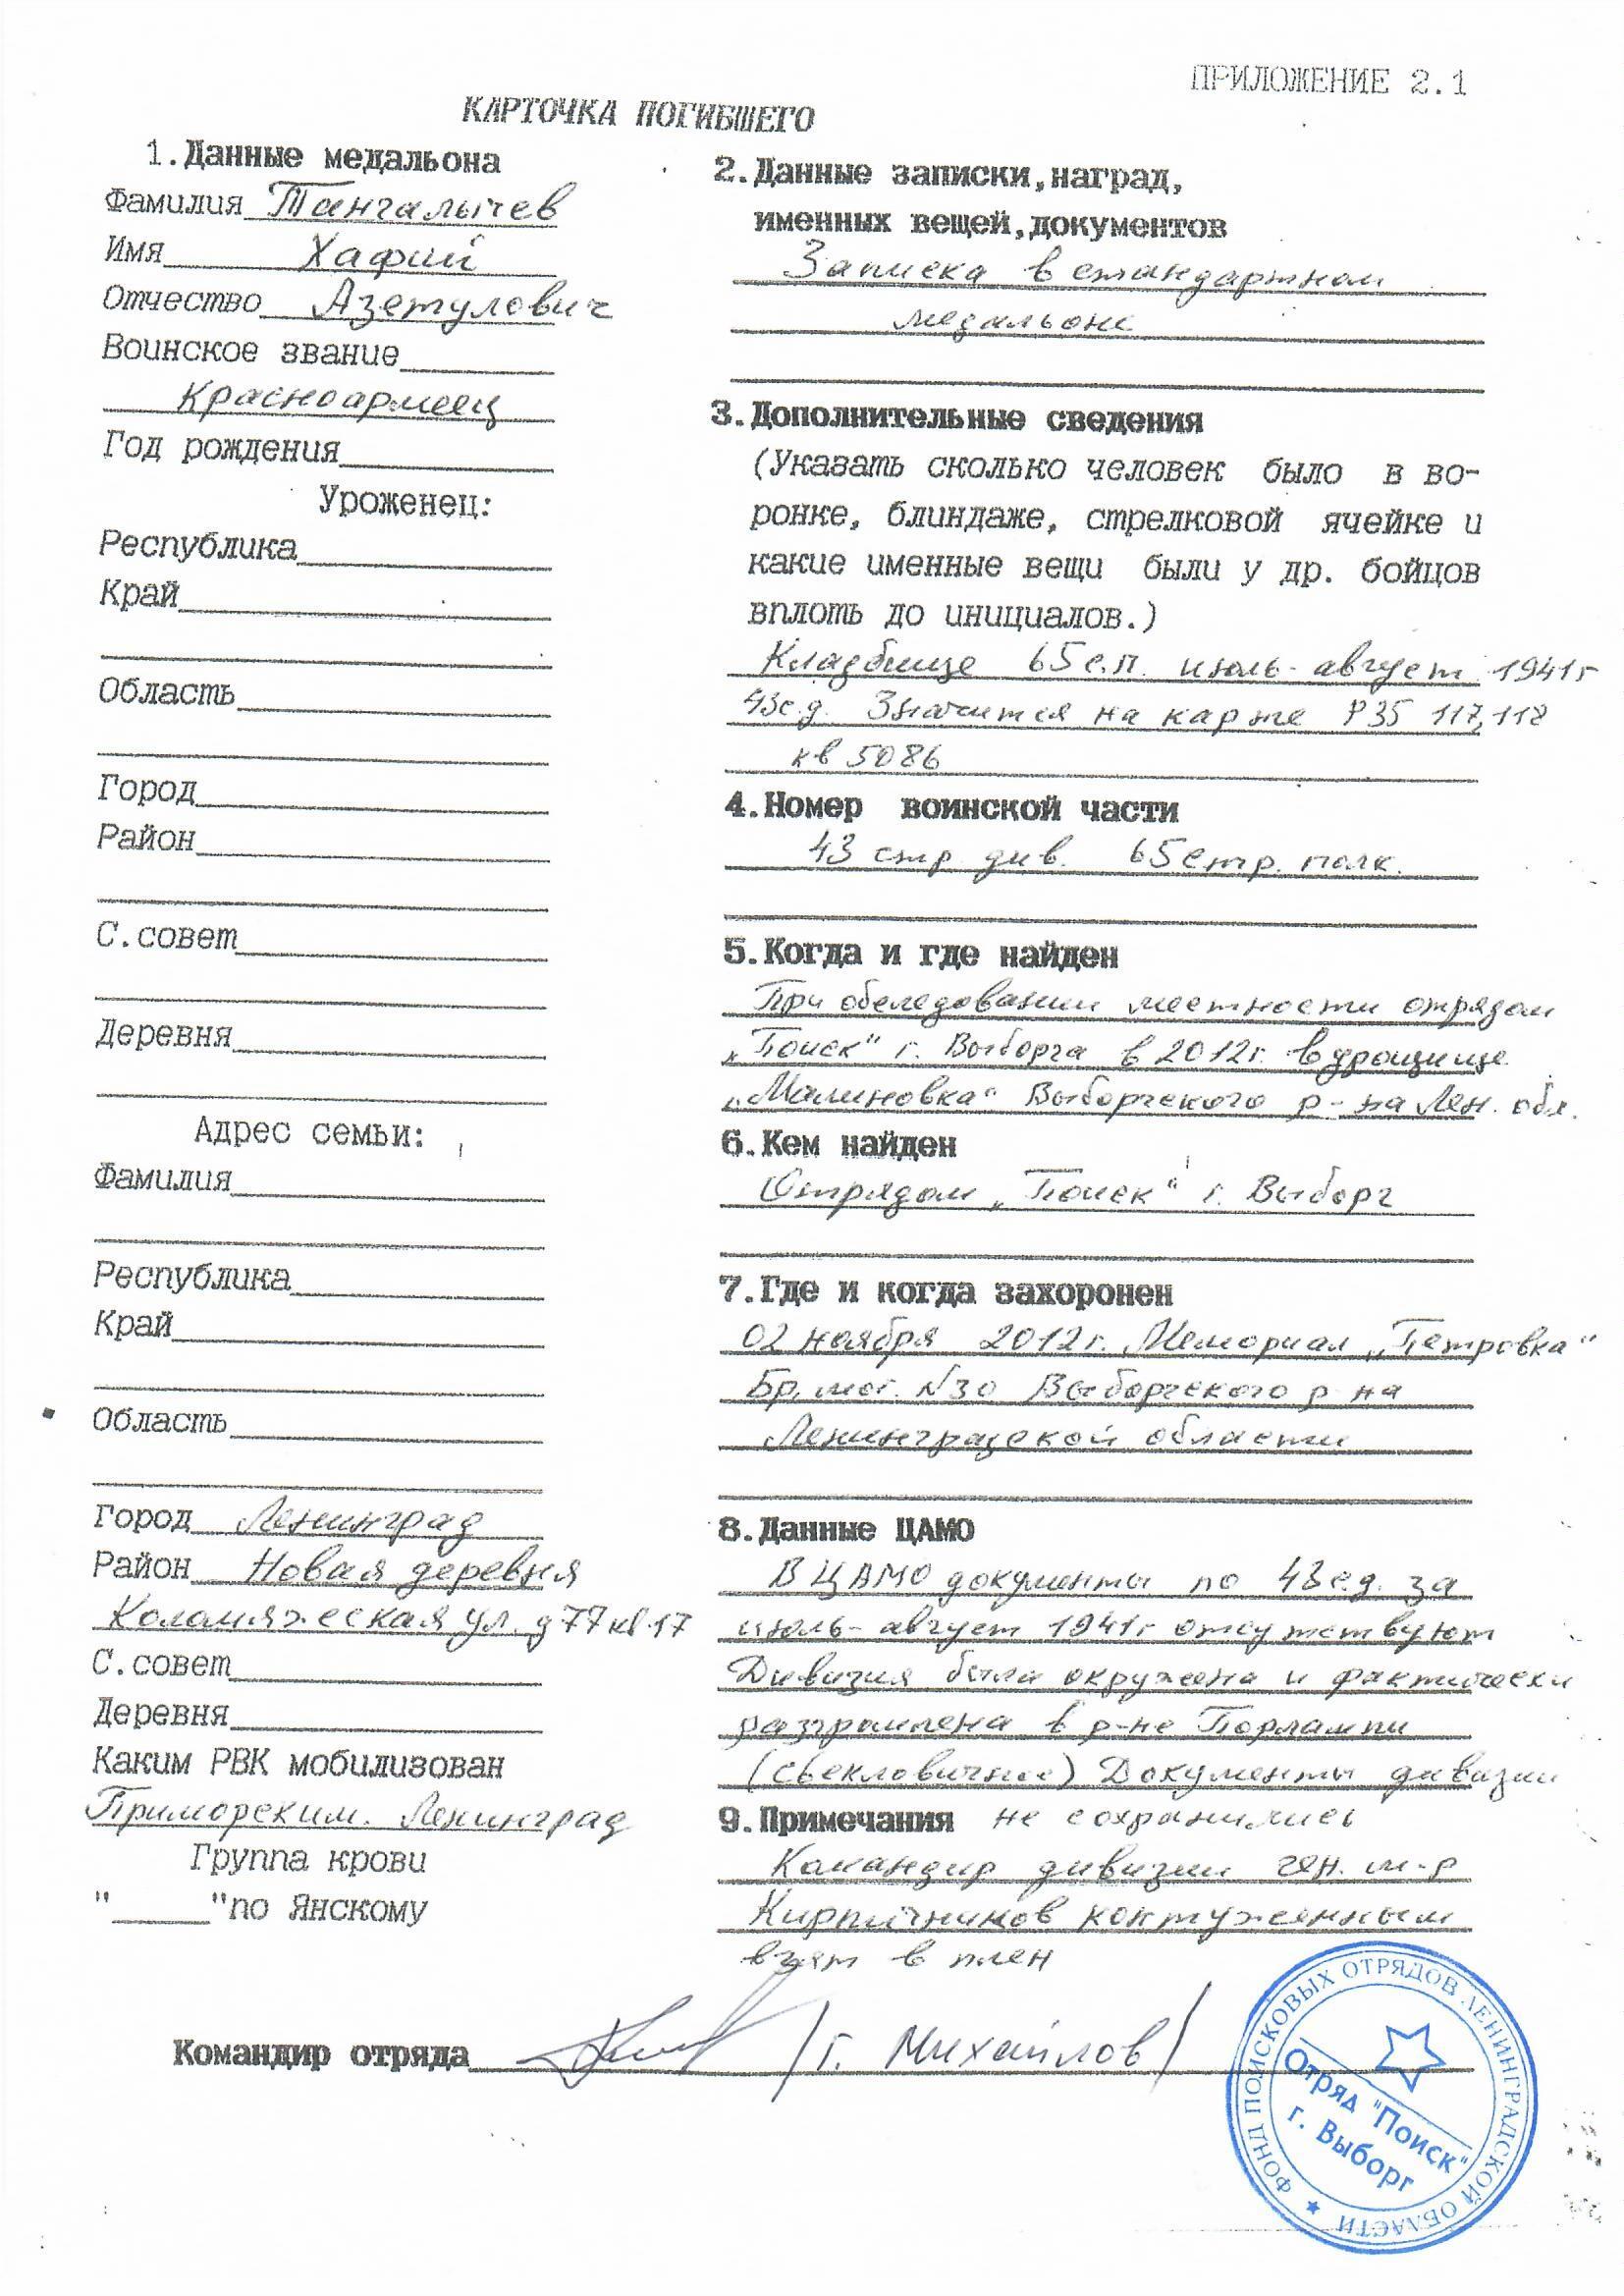 ПРИЛОЖЕНИЕ 2.1
КАРТОЧКА ПОГИБШЕГО
1.Данные медальона
Фамилия Тангалычев
Имя Хафий
Отчество Азетулович
Воинское звание
Красноармеец
Год рождения
Уроженец:
Республика
Край
Область
Город
Район
С.совет
Деревня
Адрес семьи:
Фамилия
Республика
Край
Область
Город Ленинград
Район Новая деревня
Коломяжеская ул. д 77 кв. 17
С.совет
Деревня
Каким РВК мобилизован
Приморским. Ленинград
Группа крови
"_____"по Янскому
2.Данные записки,наград,
именных вещей,документов
Записка в стандартном
медальоне
3.Дополнительные сведения
(Указать сколько человек было в во-
ронке, блиндаже, стрелковой ячейке и
какие именные вещи были у др. бойцов
вплоть до инициалов.)
Кладбище 65 с.п. июль-август 1941г
43с.д. Значится на карте Р35 117,118
кв 5086
4.Номер воинской части
43 стр. див. 65 стр. полк.
5.Когда и где найден
При обследовании местности отрядом
„Поиск" г. Выборга в 2012г. в урочище
„Малиновка" Выборгского р-на Лен. обл.
6.Кем найден
Отрядом „Поиск" г. Выборг
7.Где и когда захоронен
02 ноября 2012г. Мемориал „Петровка"
Бр. мог. №30 Выборгского р-на
Ленинградской области
8.Данные ЦАМО
В ЦАМО документы по 43с.д. за
июль-август 1941г отсутствуют
Дивизия была окружена и фактически
разгромлена в р-не Порлампи
(Свекловичное) Документы дивизии
9.Примечания не сохранились
Командир дивизии ген. м-р
Кирпичников контуженным
взят в плен
Командир отряда /Г. Михайлов/
ФОНД ПОИСКОВЫХ ОТРЯДОВ ЛЕНИНГРАДСКОЙ ОБЛАСТИ
Отряд "Поиск"
г. Выборг